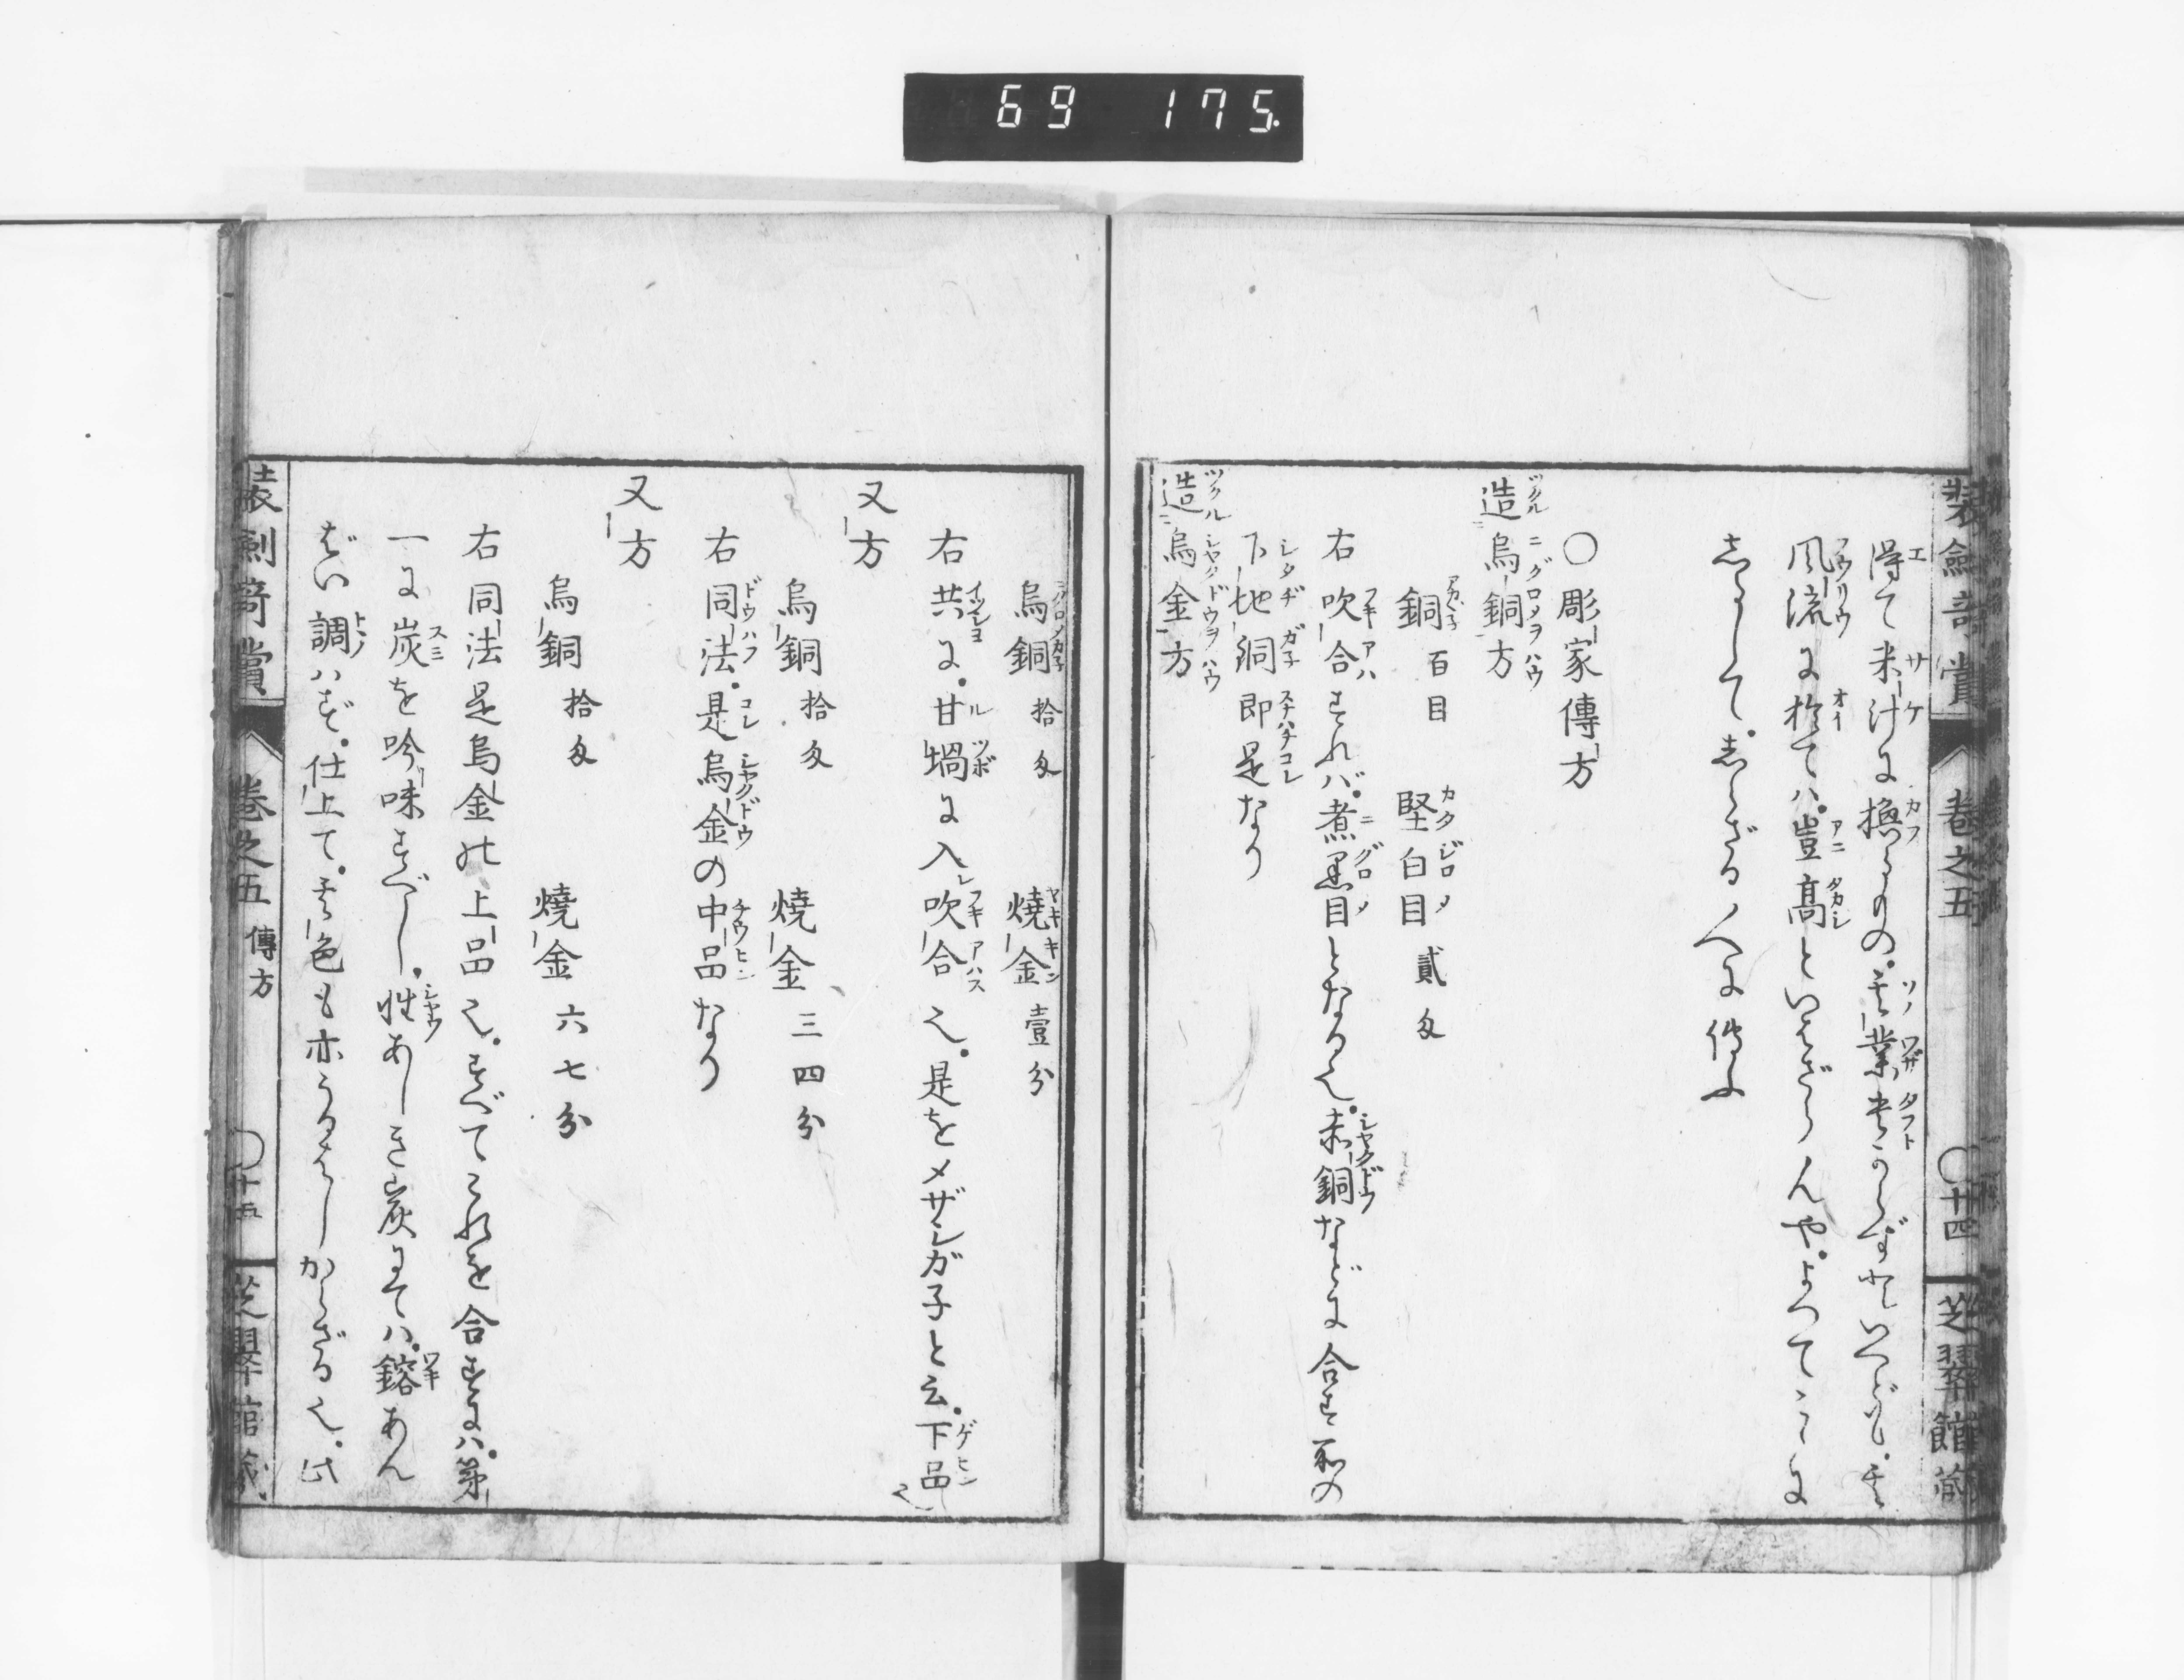 69 175.
装劔奇賞 卷之五 〇廿四 芝翠館藏
得て米汁に換るもの。其業貴からずといへども。其
風流に於てハ。豈高といはざらんや。よつてこゝに
志るして。志らざる人に傳ふ
〇彫家傳方
造烏銅方
銅百目 堅白目貳匁
右吹合すれバ。煮黒目となる也。赤銅などに合す所の
下地銅即是なり
造烏金方
烏銅拾匁 燒金壹分
右共に。甘堝に入レ吹合也。是をメザシガ子と云。下品也
又方
烏銅拾匁 燒金三四分
右同法。是烏金の中品なり
又方
烏銅拾匁 燒金六七分
右同法是烏金の上品也。すべてこれを合すにハ。第
一に炭を吟味すべし。性あしき炭にてハ。鎔あん
ばい調ハず。仕上て。其色も亦うるはしからざる也。此
装劍奇賞 卷之五 傳方 〇廿五 芝翠館藏